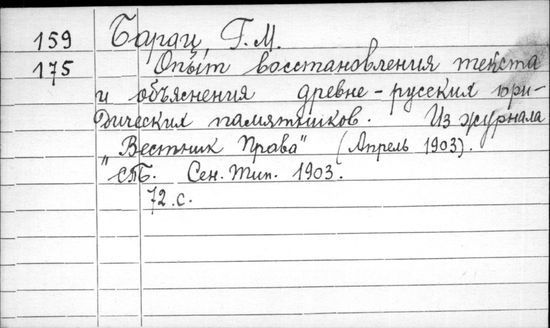 159 Барац Г. М.
175 Опыт восстановления текста
и объяснения древне-русских юри-
дических памятников. Из журнала
„Вестник Права" (Апрель 1903).
СПБ. Сен. Тип. 1903.
72 с.